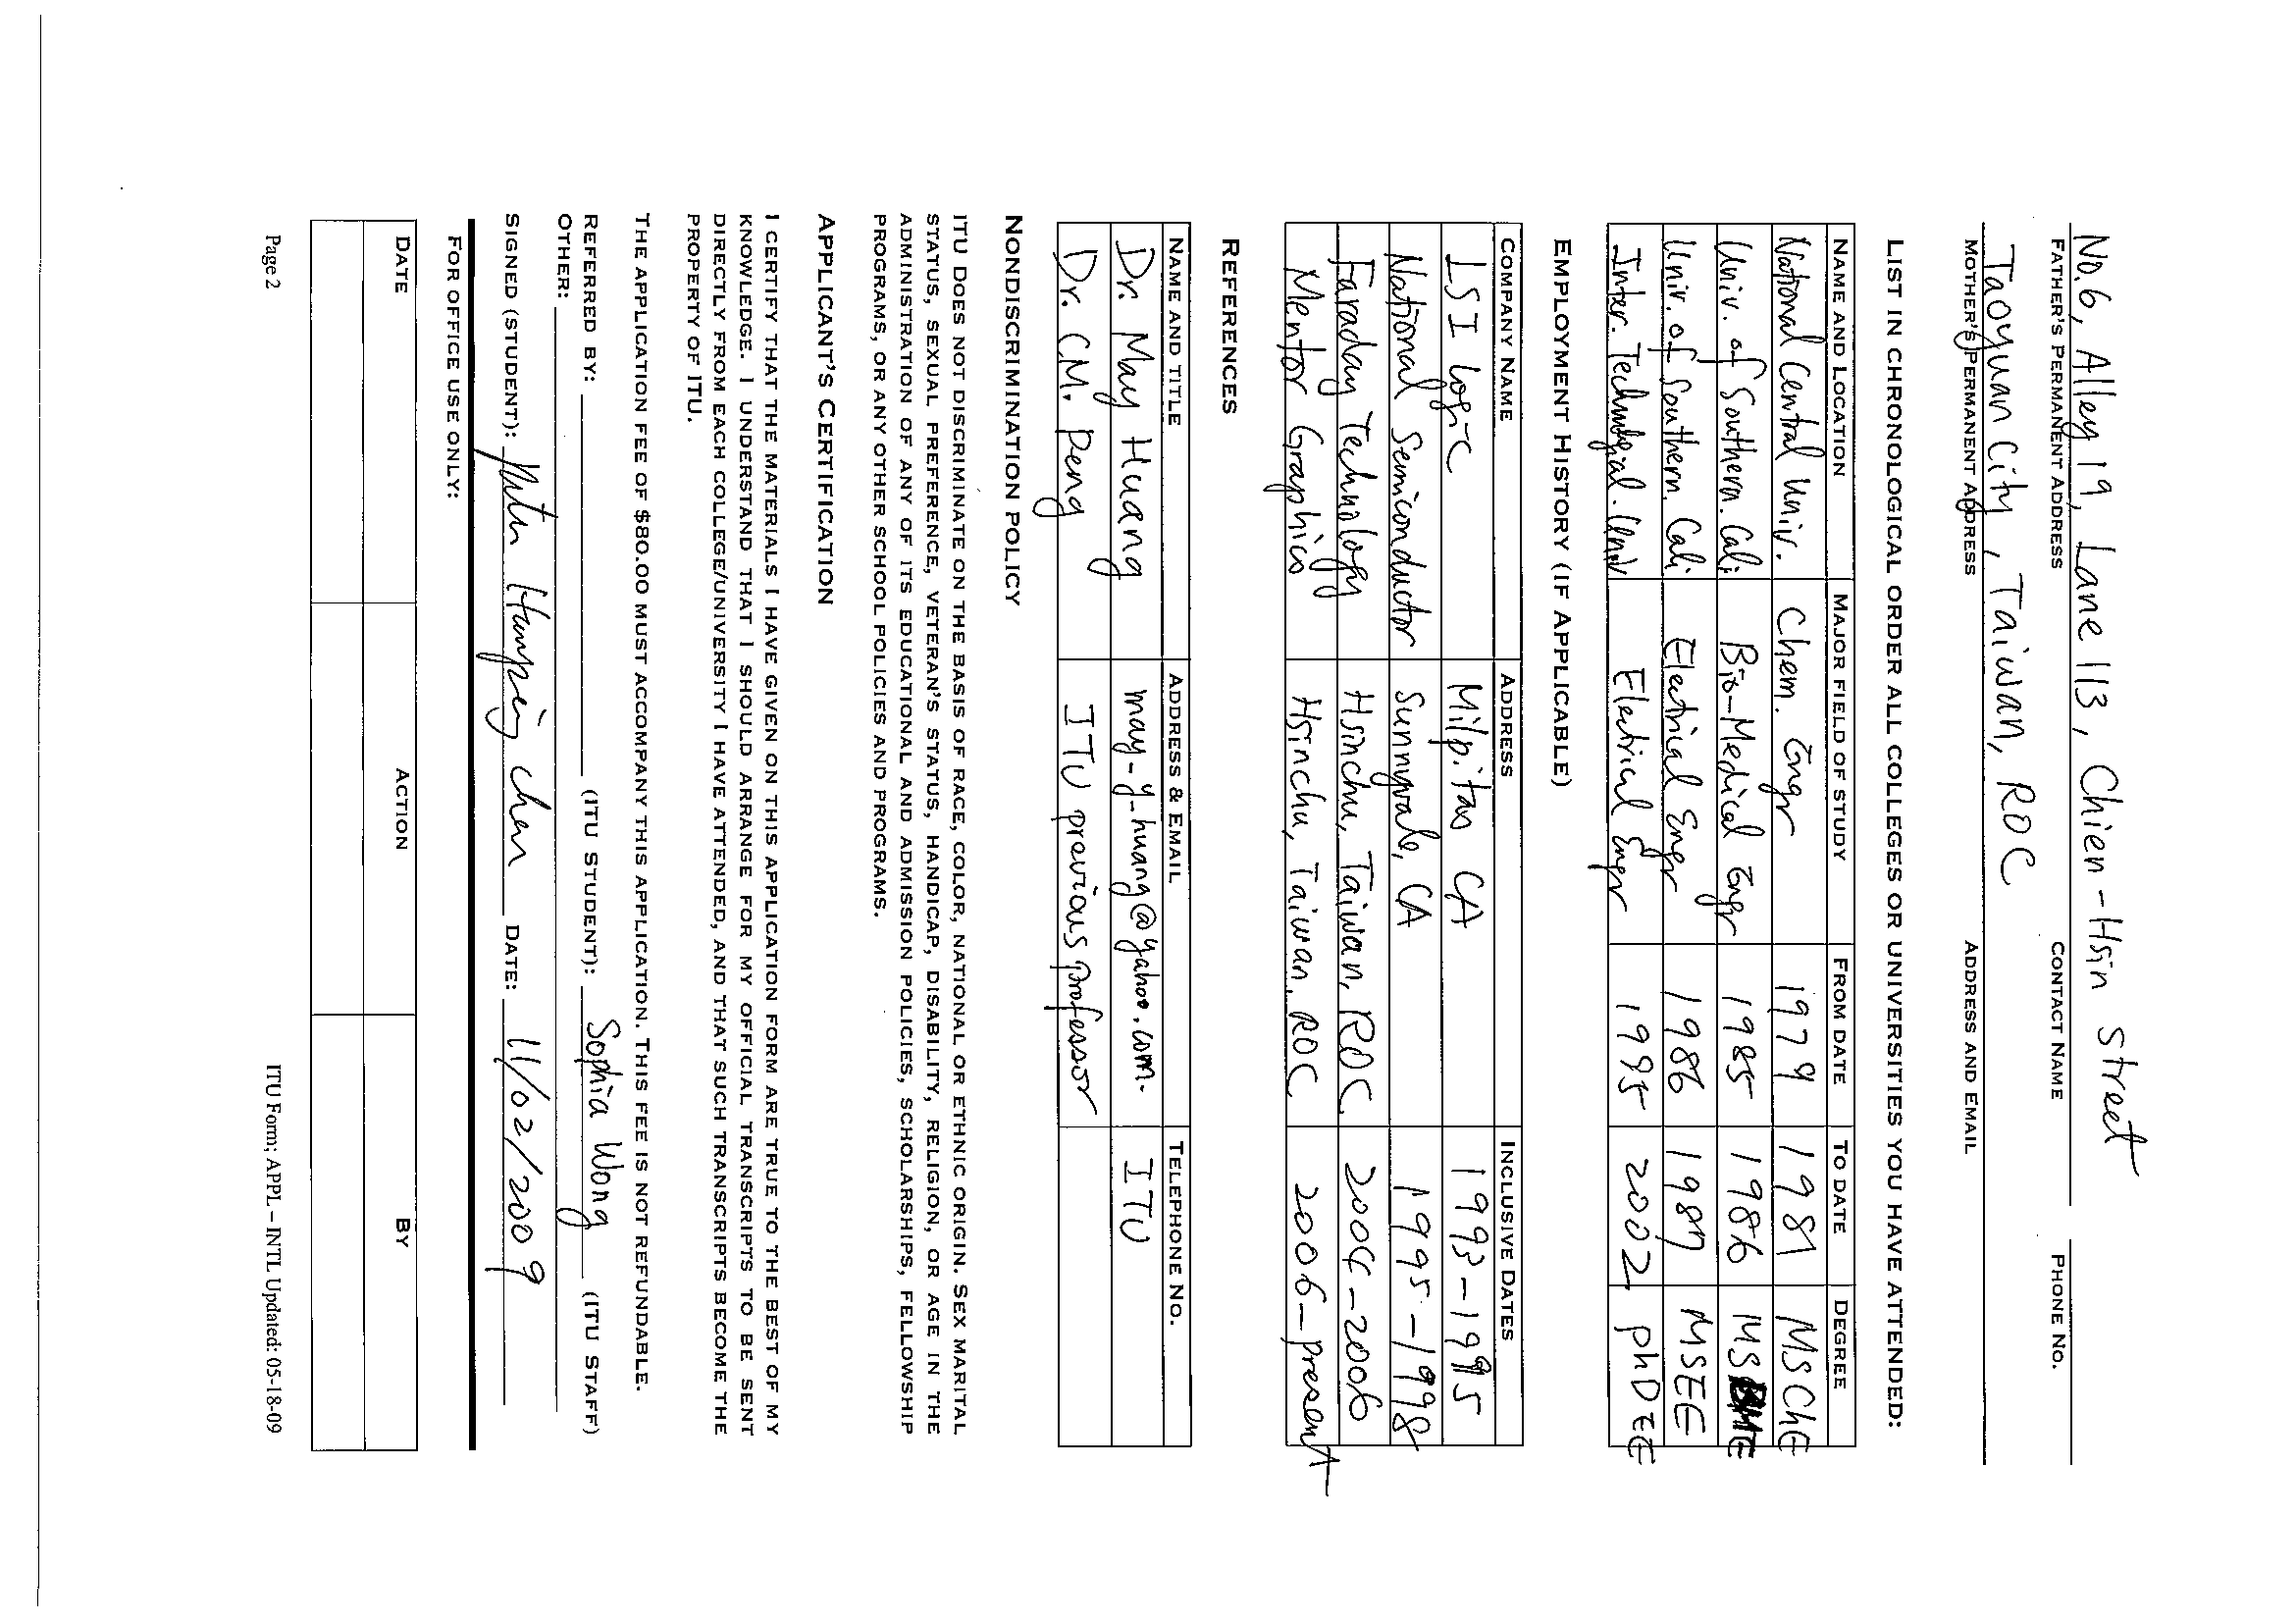 No.6, Alley 19, Lane 113, Chien-Hsin street
FATHER'S PERMANENT ADDRESS CONTACT NAME PHONE NO.
Taoyuan City, Taiwan, ROC
MOTHER'S PERMANENT ADDRESS ADDRESS AND EMAIL
LIST IN CHRONOLOGICAL ORDER ALL COLLEGES OR UNIVERSITIES YOU HAVE ATTENDED:
NAME AND LOCATION MAJOR FIELD OF STUDY FROM DATE TO DATE DEGREE
National Central Univ. Chem. Engr 1979 1981 MSChE
Univ. of Southern. Cali. Bio-Medical Engr 1985 1986 MS
Univ. of Southern. Cali. Electrical Engr 1986 1987 MSEE
Inter. Technological. Univ Electrical Engr 1995 2002 PhDEE
EMPLOYMENT HISTORY (IF APPLICABLE)
COMPANY NAME ADDRESS INCLUSIVE DATES
LSI Logic Milpitas CA 1993-1995
National Semiconductor Sunnyvale, CA 1995-1998
Faraday Technology Hsinchu, Taiwan, ROC 2004-2006
Mentor Graphics Hsinchu, Taiwan, ROC 2006-present
REFERENCES
NAME AND TITLE ADDRESS & EMAIL TELEPHONE NO.
Dr. May Huang may-y-huang@yahoo.com. ITU
Dr. CM. Peng ITU previous professor
NONDISCRIMINATION POLICY
ITU DOES NOT DISCRIMINATE ON THE BASIS OF RACE, COLOR, NATIONAL OR ETHNIC ORIGIN. SEX MARITAL
STATUS, SEXUAL PREFERENCE, VETERAN'S STATUS, HANDICAP, DISABILITY, RELIGION, OR AGE IN THE
ADMINISTRATION OF ANY OF ITS EDUCATIONAL AND ADMISSION POLICIES, SCHOLARSHIPS, FELLOWSHIP
PROGRAMS, OR ANY OTHER SCHOOL POLICIES AND PROGRAMS.
APPLICANT'S CERTIFICATION
I CERTIFY THAT THE MATERIALS I HAVE GIVEN ON THIS APPLICATION FORM ARE TRUE TO THE BEST OF MY
KNOWLEDGE. I UNDERSTAND THAT I SHOULD ARRANGE FOR MY OFFICIAL TRANSCRIPTS TO BE SENT
DIRECTLY FROM EACH COLLEGE/UNIVERSITY I HAVE ATTENDED, AND THAT SUCH TRANSCRIPTS BECOME THE
PROPERTY OF ITU.
THE APPLICATION FEE OF $80.00 MUST ACCOMPANY THIS APPLICATION. THIS FEE IS NOT REFUNDABLE.
REFERRED BY: (ITU STUDENT): Sophia Wong (ITU STAFF)
OTHER:
SIGNED (STUDENT): chen DATE: 11/02/2009
FOR OFFICE USE ONLY:
DATE ACTION BY
Page 2 ITU Form; APPL – INTL Updated: 05-18-09